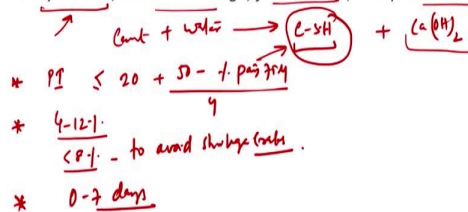 Cement + water → C-SH + Ca(OH)2
* PI ≤ 20 + 50 - % passing 75 μ / 4
* 4-12%
<8% - to avoid shrinkage cracks.
* 0-7 days